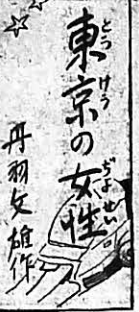 東京の女性
とうけう ぢよせい
丹羽文雄作